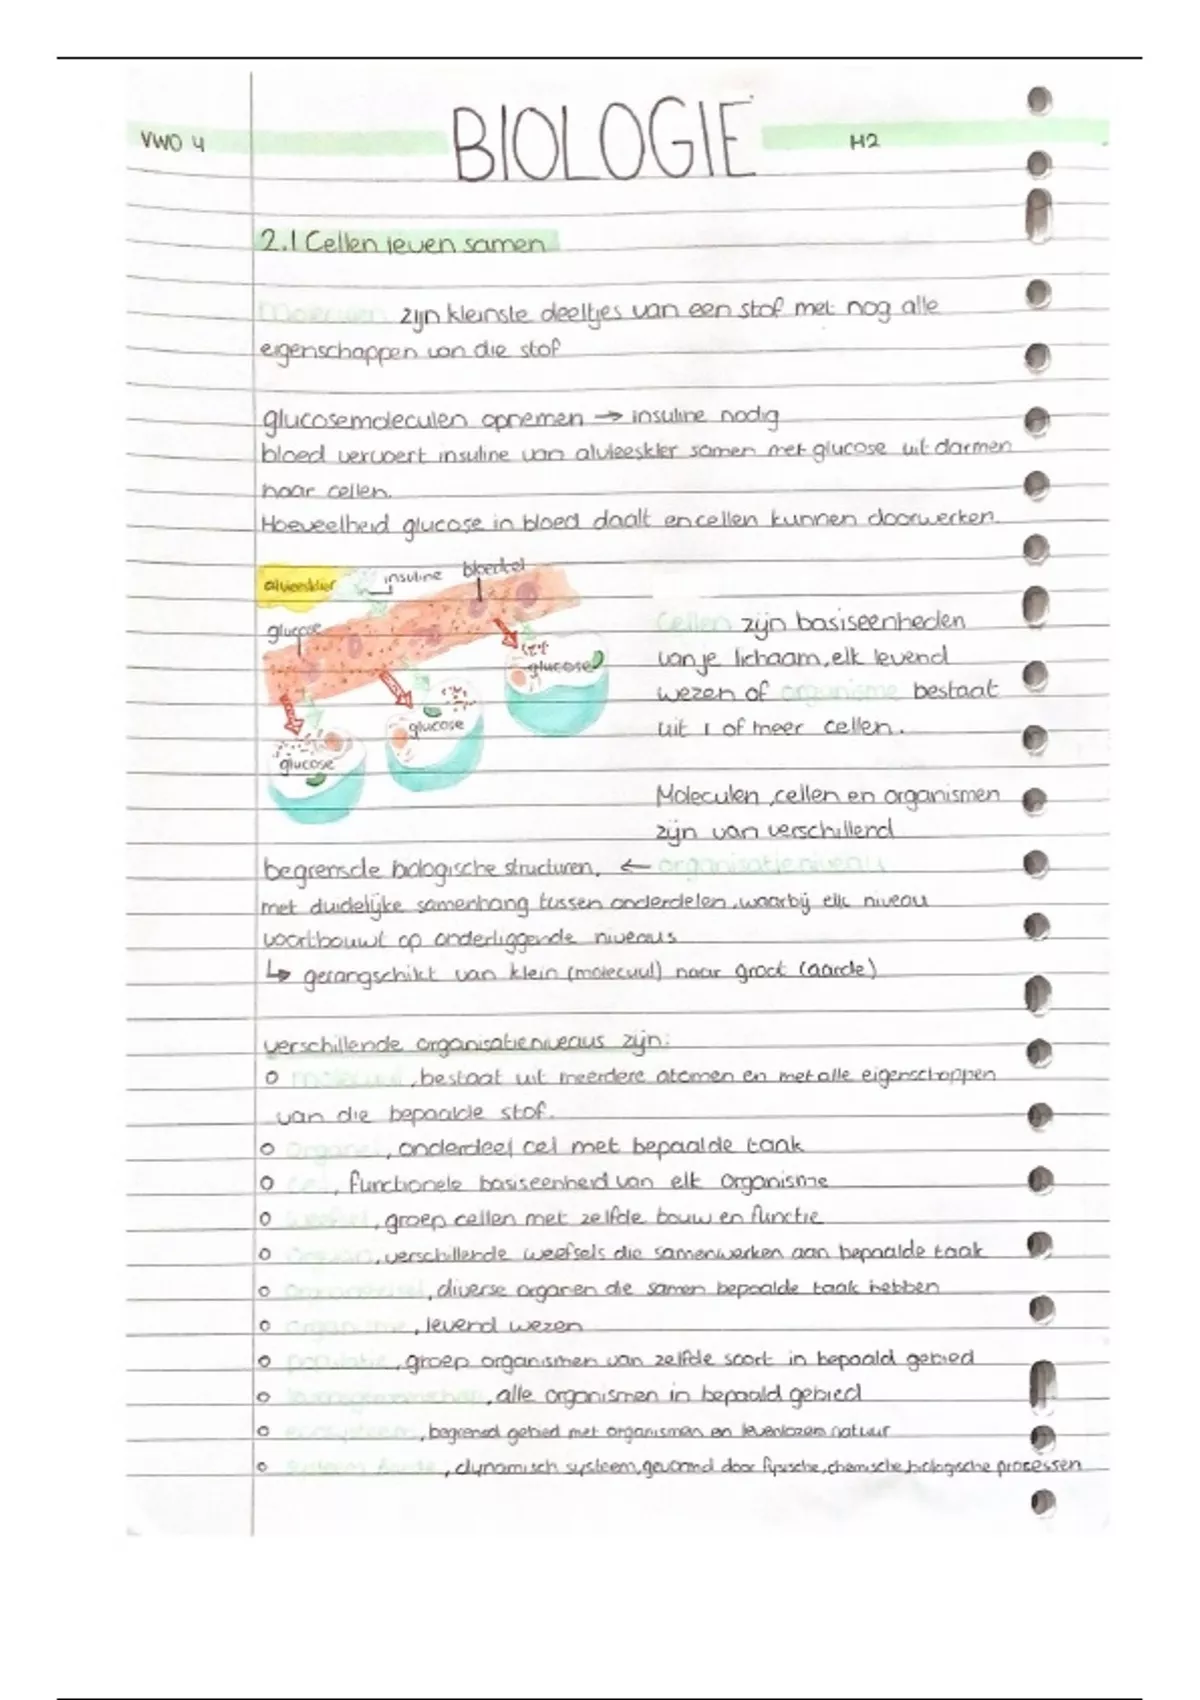 VWO 4
BIOLOGIE
H2
2.1 Cellen leven samen
Moleculen zijn kleinste deeltjes van een stof met nog alle
eigenschappen van die stof
glucosemoleculen opnemen → insuline nodig
bloed vervoert insuline van alvleesklier samen met glucose uit darmen
naar cellen.
Hoeveelheid glucose in bloed daalt en cellen kunnen doorwerken.
alvleesklier
insuline
bloedcel
glucose
glucose
glucose
glucose
Cellen zijn basiseenheden
van je lichaam, elk levend
wezen of organisme bestaat
uit 1 of meer cellen.
Moleculen, cellen en organismen
zijn van verschillend
begrensde biologische structuren, ← organisatieniveau
met duidelijke samenhang tussen onderdelen, waarbij elk niveau
voortbouwt op onderliggende niveaus
↳ gerangschikt van klein (molecuul) naar groot (aarde)
verschillende organisatieniveaus zijn:
o molecuul, bestaat uit meerdere atomen en met alle eigenschappen
van die bepaalde stof.
o organel, onderdeel cel met bepaalde taak
o cel, functionele basiseenheid van elk organisme
o weefsel, groep cellen met zelfde bouw en functie
o orgaan, verschillende weefsels die samenwerken aan bepaalde taak
o orgaanstelsel, diverse organen die samen bepaalde taak hebben
o organisme, levend wezen
o populatie, groep organismen van zelfde soort in bepaald gebied
o levensgemeenschap, alle organismen in bepaald gebied
o ecosysteem, begrensd gebied met organismen en levenlozen natuur
o systeem Aarde, dynamisch systeem, gevormd door fysische, chemische, biologische processen